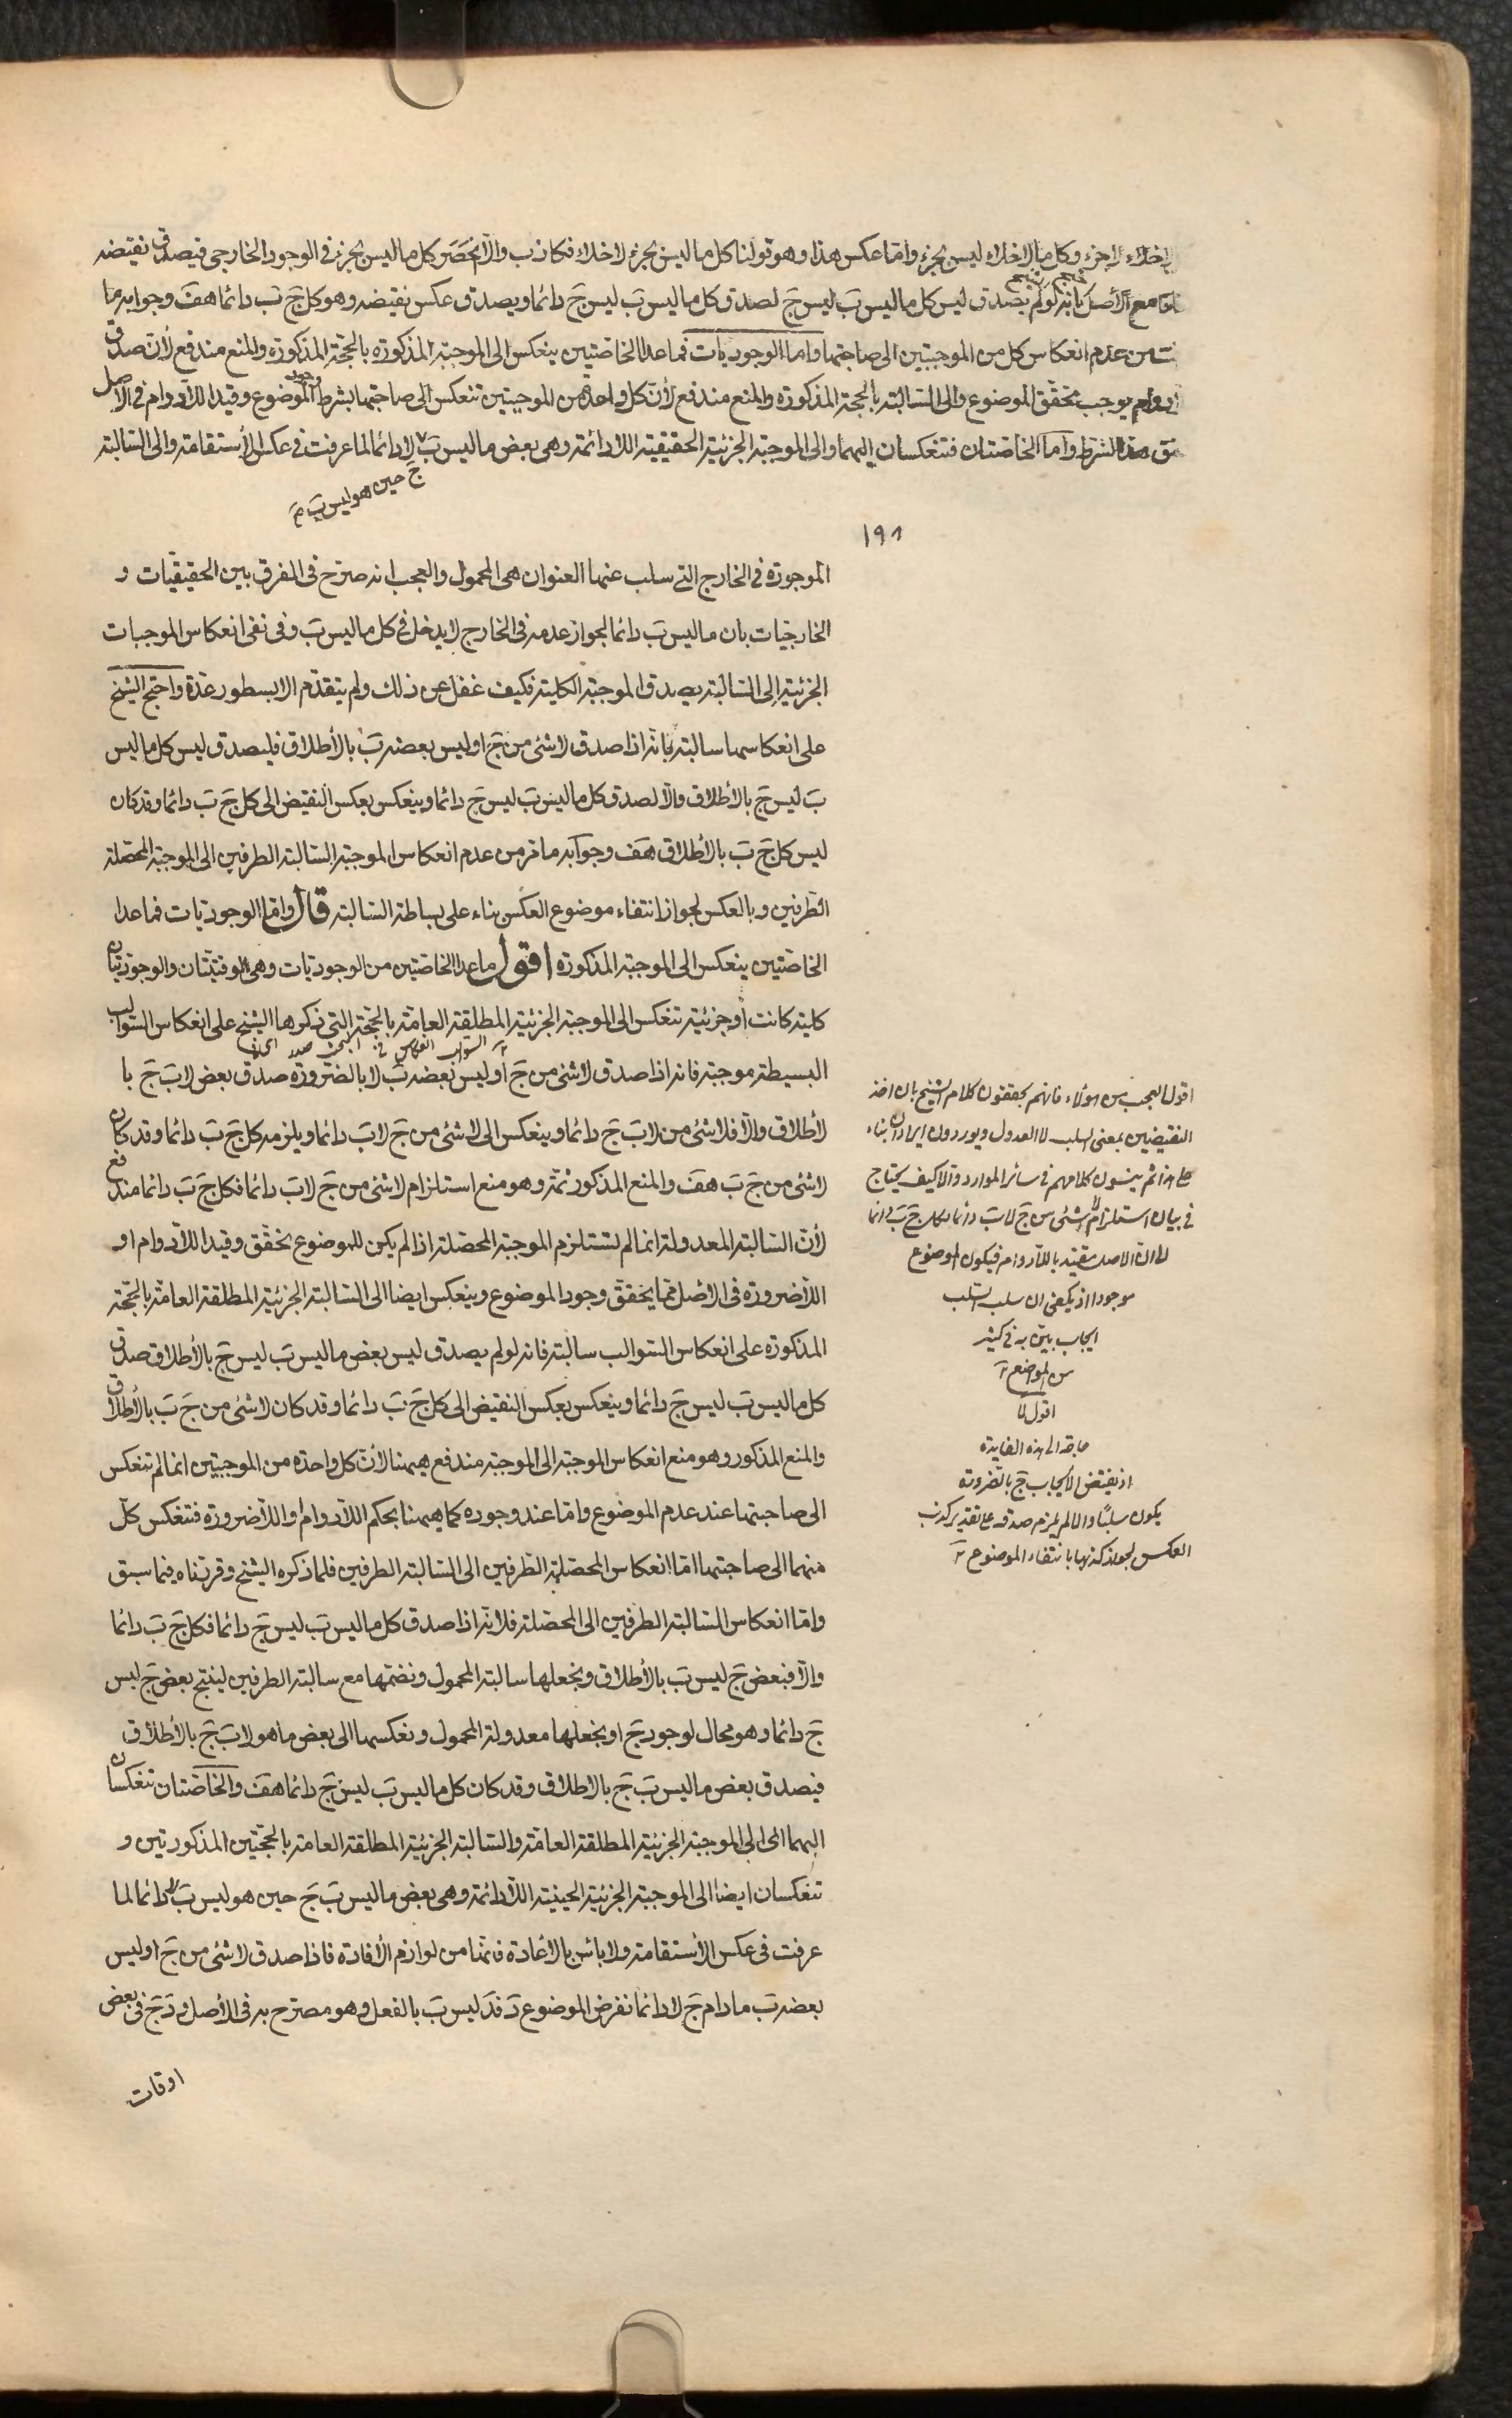 لاخلاء لاجزء وكل مالاخلاء ليس بجزء واما عكس هذا وهو قولنا كل ما ليس بجزء لاخلاء فكاذب والا انحصر كل ما ليس بجزء فى الوجود الخارجى فيصدق نقيضه
مع الأصل بانه لو لم يصدق ليس كل ما ليس بَ ليس جَ لصدق كل ما ليس بَ ليس جَ دائما ويصدق عكس نقيضه وهو كل جَ بَ دائما هف وجوابه ما
من عدم انعكاس كل من الموجبتين الى صاحبتها واما الوجوديات فما عدا الخاصتين ينعكس الى الموجبة المذكورة بالحجة المذكورة والمنع مندفع لأن صدق
يوجب تحقق الموضوع والى السالبة بالحجة المذكورة والمنع مندفع لأن كل واحدة من الموجبتين تنعكس الى صاحبتها بشرط وجود الموضوع وقيد اللادوام فى الاصل
هذا الشرط واما الخاصتان فتنعكسان اليهما والى الموجبة الجزئية الحقيقية اللادائمة وهى بعض ما ليس بَ لادائما لما عرفت فى عكس الأستقامة والى السالبة
جَ حين هو ليس بَ
١٩١
الموجودة فى الخارج التى سلب عنها العنوان هى المحمول والعجب انه صرح فى الفرق بين الحقيقيات و
الخارجيات بان ما ليس بَ دائما لجواز عدمه فى الخارج لا يدخل فى كل ما ليس بَ وفى نفى انعكاس الموجبات
الجزئية الى السالبة يصدق الموجبة الكلية فكيف غفل عن ذلك ولم يتقدم الا بسطور عدة واحتج الشيخ
على انعكاسها سالبة بانه اذا صدق لاشئ من جَ او ليس بعضه بَ بالأطلاق فليصدق ليس كل ما ليس
بَ ليس جَ بالأطلاق والا لصدق كل ما ليس بَ ليس جَ دائما وينعكس بعكس النقيض الى كل جَ بَ دائما وقد كان
ليس كل جَ بَ بالأطلاق هف وجوابه ما مر من عدم انعكاس الموجبة السالبة الطرفين الى الموجبة المحصلة
الطرفين وبالعكس لجواز انتفاء موضوع العكس بناء على بساطة السالبة قال واما الوجوديات فما عدا
الخاصتين ينعكس الى الموجبة المذكورة اقول ما عدا الخاصتين من الوجوديات وهى الوقتيتان والوجوديتان
كلية كانت أو جزئية تنعكس الى الموجبة الجزئية المطلقة العامة بالحجة التى ذكرها الشيخ على انعكاس السوالب
البسيطة موجبة فانه اذا صدق لاشئ من جَ او ليس بعضه بَ لابالضرورة صدق بعض لابَ جَ با
لأطلاق والا فلاشئ من لابَ جَ دائما وينعكس الى لاشئ من جَ لابَ دائما ويلزمه كل جَ بَ دائما وقد كان
لاشئ من جَ بَ هف والمنع المذكور ثمة وهو منع استلزام لاشئ من جَ لابَ دائما فكل جَ بَ دائما مندفع
لأن السالبة المعدولة انما لم تستلزم الموجبة المحصلة اذا لم يكن للموضوع تحقق وقيد اللادوام او
اللاضرورة فى الأصل مما يحقق وجود الموضوع وينعكس ايضا الى السالبة الجزئية المطلقة العامة بالحجة
المذكورة على انعكاس السوالب سالبة فانه لو لم يصدق ليس بعض ما ليس بَ ليس جَ بالأطلاق صدق
كل ما ليس بَ ليس جَ دائما وينعكس بعكس النقيض الى كل جَ بَ دائما وقد كان لاشئ من جَ بَ بالأطلاق
والمنع المذكور وهو منع انعكاس الموجبة الى الموجبة مندفع ههنا لأن كل واحدة من الموجبتين انما لم تنعكس
الى صاحبتها عند عدم الموضوع واما عند وجوده كما ههنا بحكم اللادوام واللاضرورة فتنعكس كل
منهما الى صاحبتها اما انعكاس المحصلة الطرفين الى السالبة الطرفين فلما ذكره الشيخ وقررناه فيما سبق
واما انعكاس السالبة الطرفين الى المحصلة فلانه اذا صدق كل ما ليس بَ ليس جَ دائما فكل جَ بَ دائما
والا فبعض جَ ليس بَ بالأطلاق ونجعلها سالبة المحمول ونضمها مع سالبة الطرفين لينتج بعض جَ ليس
جَ دائما وهو محال لوجود جَ او نجعلها معدولة المحمول ونعكسها الى بعض ما هو لابَ جَ بالأطلاق
فيصدق بعض ما ليس بَ جَ بالاطلاق وقد كان كل ما ليس بَ ليس جَ دائما هف والخاصتان تنعكسان
اليهما اى الى الموجبة الجزئية المطلقة العامة والسالبة الجزئية المطلقة العامة بالحجتين المذكورتين و
تنعكسان ايضا الى الموجبة الجزئية الحينية اللادائمة وهى بعض ما ليس بَ جَ حين هو ليس بَ لادائما لما
عرفت فى عكس الأستقامة ولا بأس بالأعادة فانها من لوازم الأفادة فاذا صدق لاشئ من جَ او ليس
بعضه بَ ما دام جَ لادائما نفرض الموضوع دَ فدَ ليس بَ بالفعل وهو مصرح به فى الأصل ودَ جَ فى بعض
اوقات
اقول العجب من هؤلاء فانهم يحققون كلام الشيخ بان اخذ
النقيضين بمعنى السلب لا العدول ويوردون ايرادات بناء
على هذا ثم ينسون كلامهم فى سائر الموارد والا كيف يحتاج
فى بيان استلزام لاشئ من جَ لابَ دائما لكل جَ بَ دائما
الى ان الاصل مقيد باللادوام فيكون الموضوع
موجودا اذ يكفى ان سلب السلب
ايجاب بين به فى كثير
من المواضع
اقول لا
حاجة الى هذه الفايدة
اذ نقيض الايجاب جَ بالضرورة
يكون سلبًا والا لم يلزم صدقه على تقدير كذب
العكس لجواز كذبهما بانتفاء الموضوع